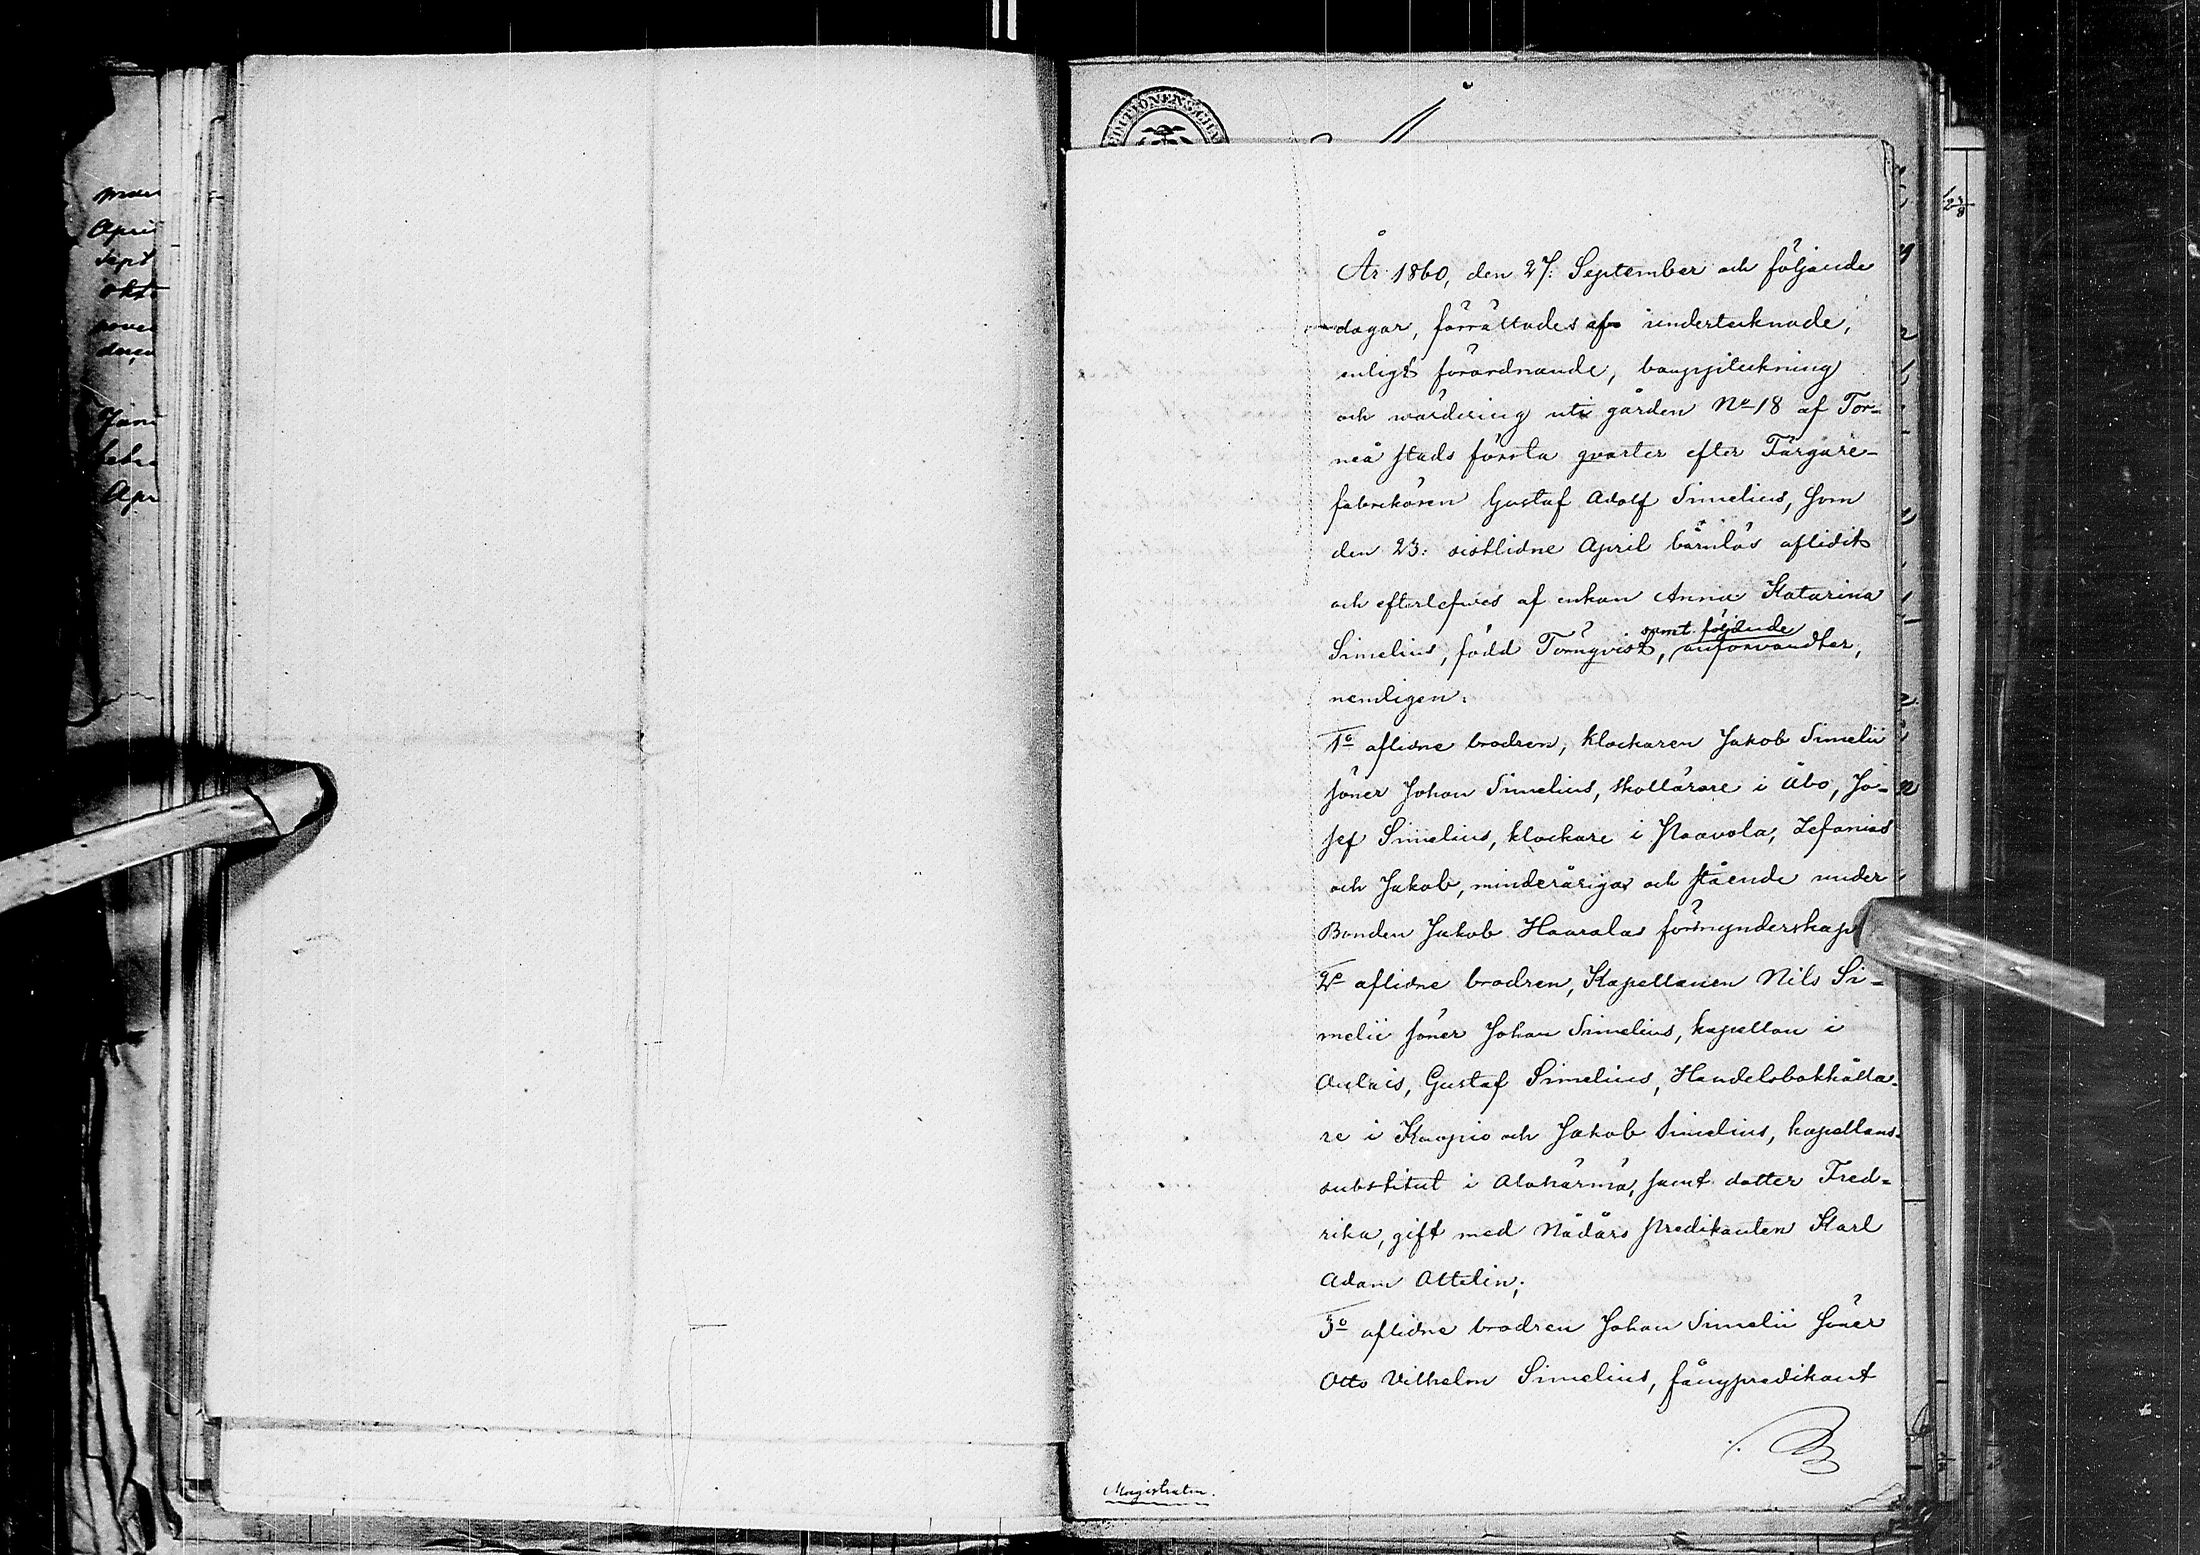 År 1860, den 27. September och följande
dagar, förrättades af undertecknade,
enligt förordnande, bouppteckning
och wärdering uti gården No 18 af Tor-
neå stads första qvarter efter Färgare-
fabrikören Gustaf Adolf Simelius, som
den 23: sistlidne April barnlös aflidit
och efterlefwes af enkan Anna Katarina
samt följande
Simelius, född Törnqvist, anförvandter,
nemligen:
1o aflidne brodren, klockaren Jakob Simelii
söner Johan Simelius, skollärare i Åbo, Jo-
sef Simelius, klockare i Paavola, Zefanias
och Jakob, minderåriga och stående under
Bonden Jakob Haaralas förmynderskap
2o aflidne brodren, Kapellanen Nils Si-
melii söner Johan Simelius, kapellan i
Aulais, Gustaf Simelius, Handelsbokhålla-
re i Kuopio och Jakob Simelius, kapellans-
substitut i Alahärmä, samt dotter Fred-
rika, gift med Nådårs Predikanten Karl
Adam Attelin;
3o aflidne brodren Johan Simelii söner
Otto Vilhelm Simelius, fängpredikant
Magistraten.
Apri
Sept
okt
Janu
Apr